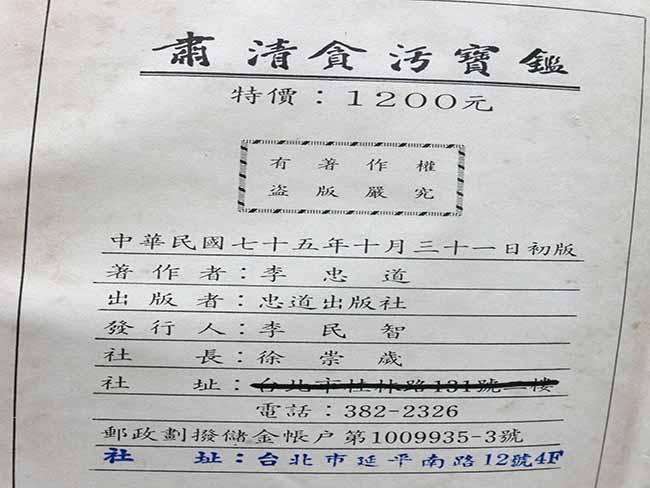 肅清貪污寶鑑
特價：1200元
有著作權
盜版嚴究
中華民國七十五年十月三十一日初版
著作者：李忠道
出版者：忠道出版社
發行人：李民智
社長：徐崇歲
社址：台北市桂林路131號二樓
電話：382-2326
郵政劃撥儲金帳户第1009935-3號
社址：台北市延平南路12號4F